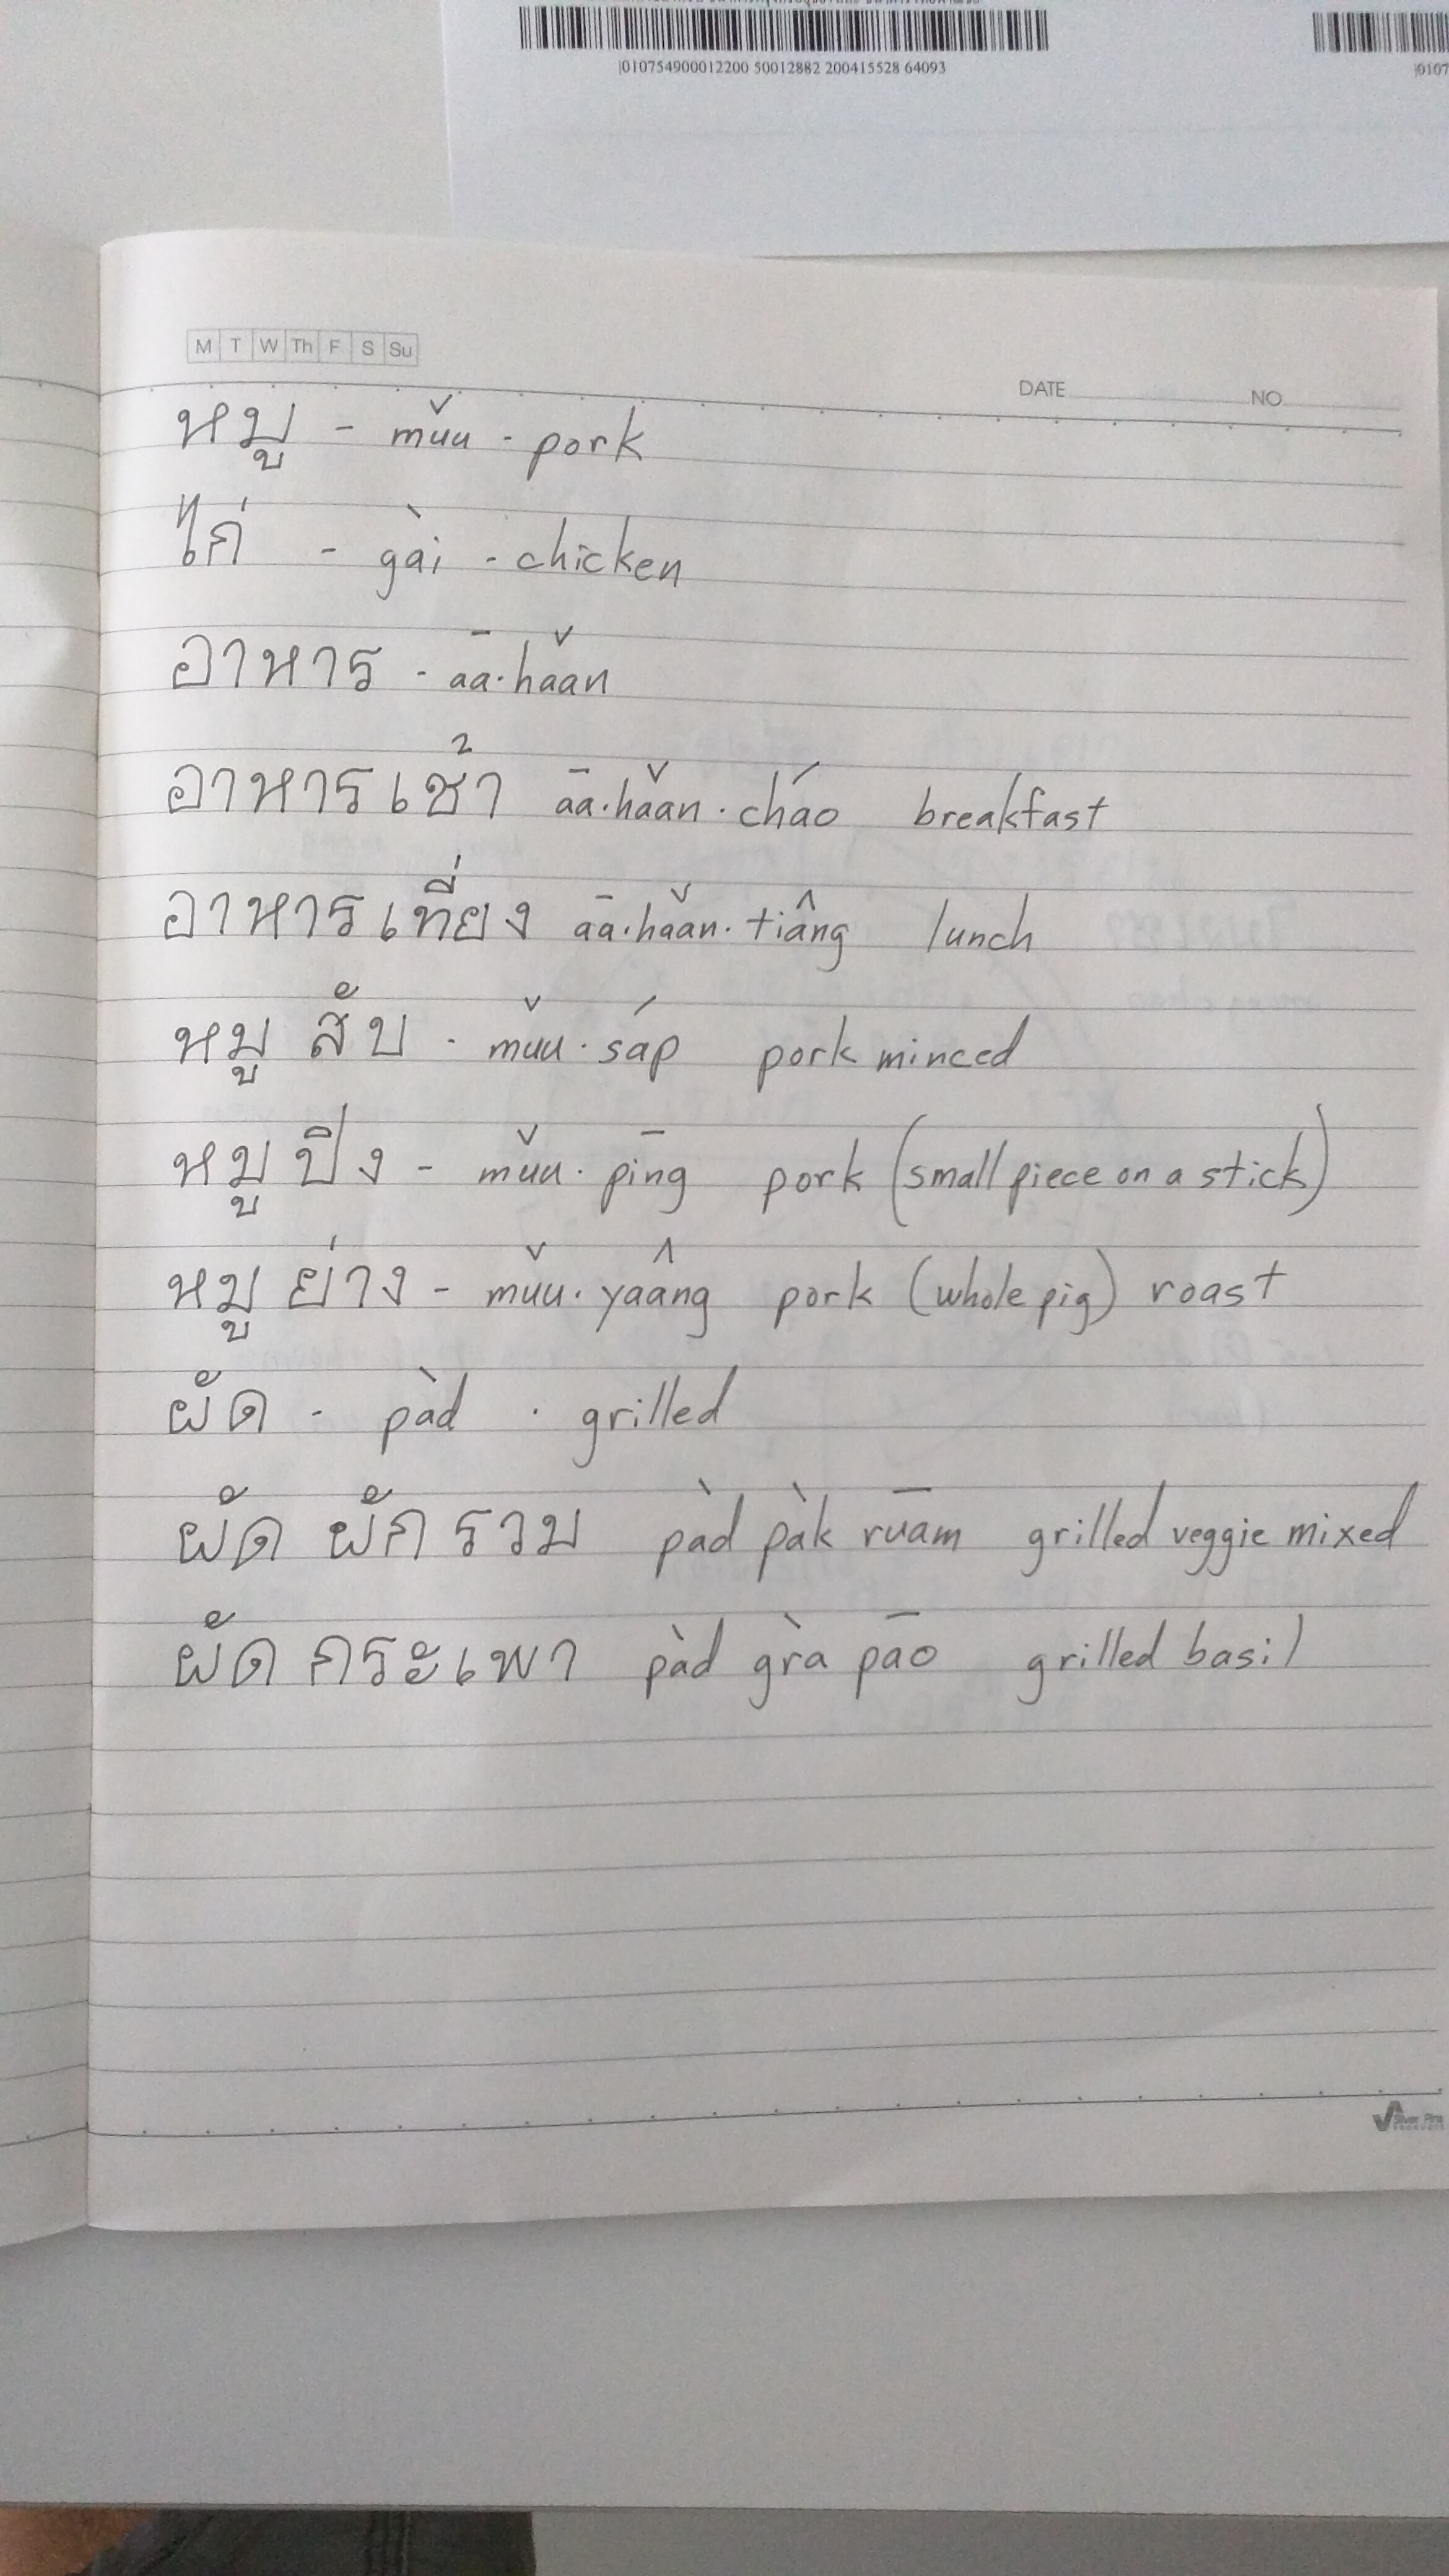 |010754900012200 50012882 200415528 64093
|0107
M T W Th F S Su
DATE NO
หมู - mǔu - pork
ไก่ - gài - chicken
อาหาร - aā·hǎan
อาหารเช้า aā·hǎan·cháo breakfast
อาหารเที่ยง aā·hǎan·tiâng lunch
หมู สับ - mǔu·sáp pork minced
หมู ปิง - mǔu·pīng pork (small piece on a stick)
หมู ย่าง - mǔu·yaâng pork (whole pig) roast
ผัด - pàd · grilled
ผัด ผัก รวม pàd pàk ruām grilled veggie mixed
ผัด กระเพา pàd grà pāo grilled basil